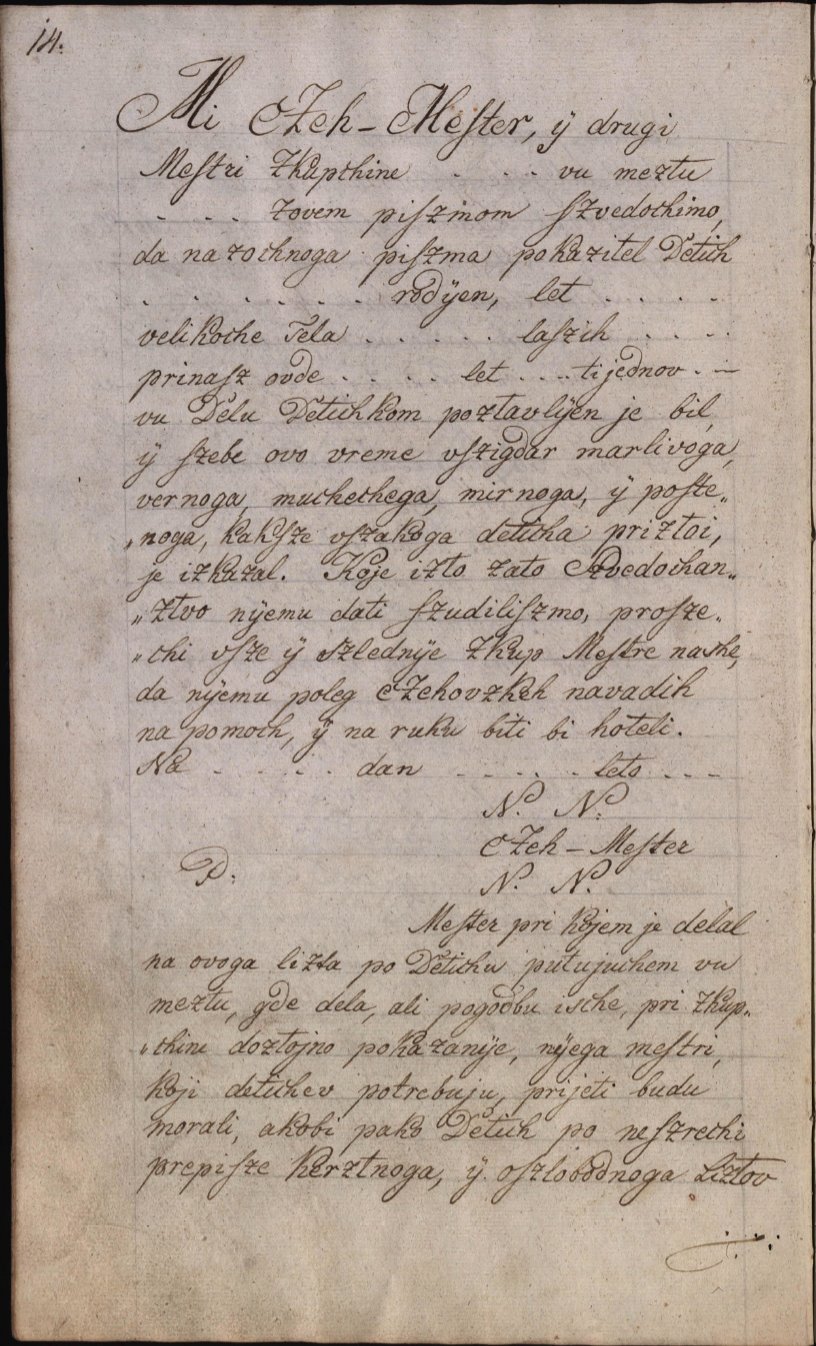 14.
Mi CZeh-Meſter, ÿ drugi
Meſtri Zkupchine . . . . vu meztu
. . . . zovem piſzmom ſzvedochimo,
da nazochnoga piſzma pokazitel Detich
. . . . . . . rodÿen, let . . . .
velikoche Tela . . . . . laſzih . . . .
prinaſz ovde . . . . let . . . . ti jednov . —
vu Delu Detichkom poztavlÿen je bil,
ÿ ſzebe ovo vreme vſzigdar marlivoga,
vernoga, muchechega, mirnoga, ÿ poſte„
„noga, kakſze vſzakoga deticha priztoi,
je izkazal. Koje izto zato Szvedochan„
„ztvo nÿemu dati ſzudiliſzmo, proſze„
„chi vſze ÿ Szlednÿe Zkup Meſtre naſhe,
da nÿemu poleg CZehovzkeh navadih
na pomoch, ÿ na ruku biti bi hoteli.
Na . . . . . dan . . . . . leto . . .
N. N:
CZeh-Meſter
P:
N. N.
Meſter pri kojem je delal
na ovoga lizta po Detichu putujuchem vu
meztu, gde dela, ali pogodbu ische, pri Zkup„
„chini doztojno pokazanÿe, nÿega meſtri,
koji detichev potrebuju, prijeti budu
morali, akobi pako Detich po neſzrechi
prepiſze kerztnoga, ÿ oſzlobodnoga Liztov